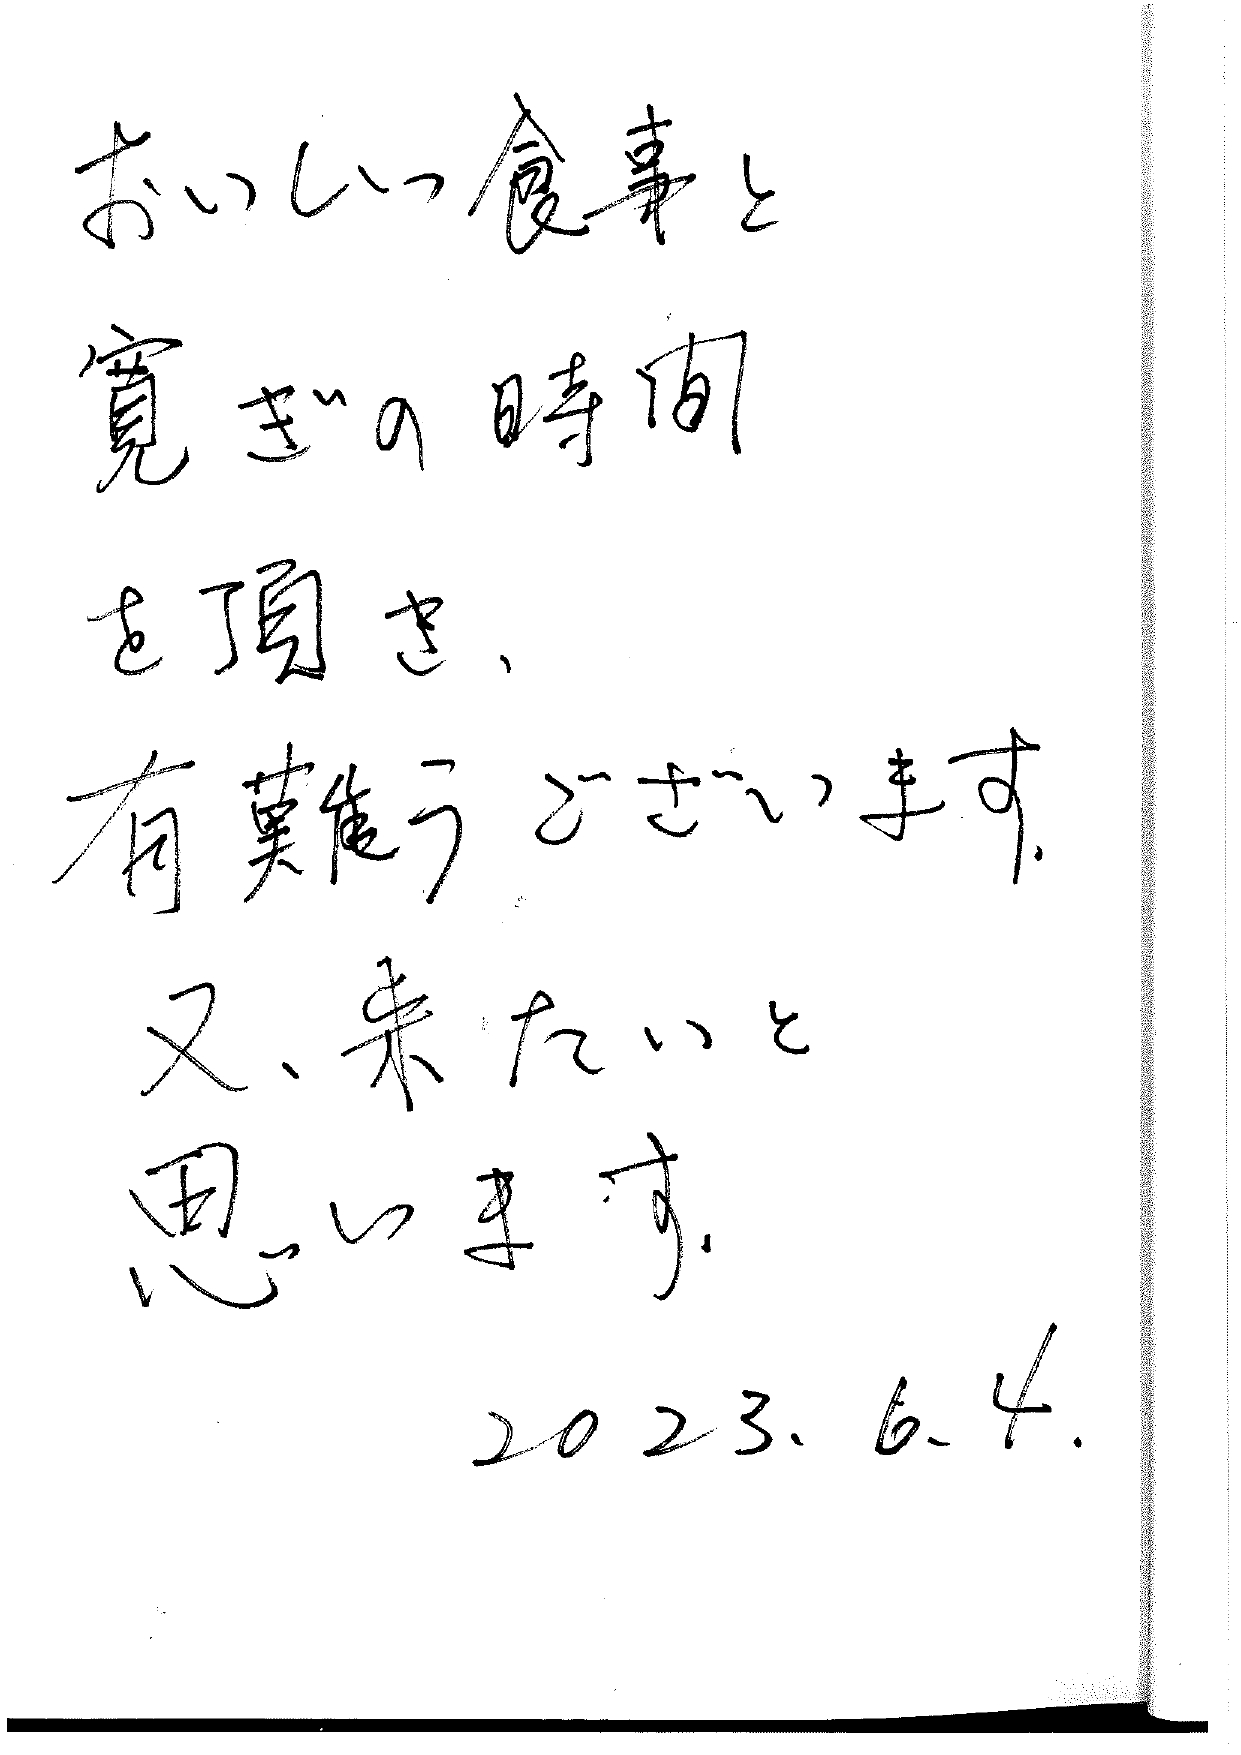 おいしい食事と
寛ぎの時間
を頂き、
有難うございます.
又、来たいと
思います.
2023. 6. 4.